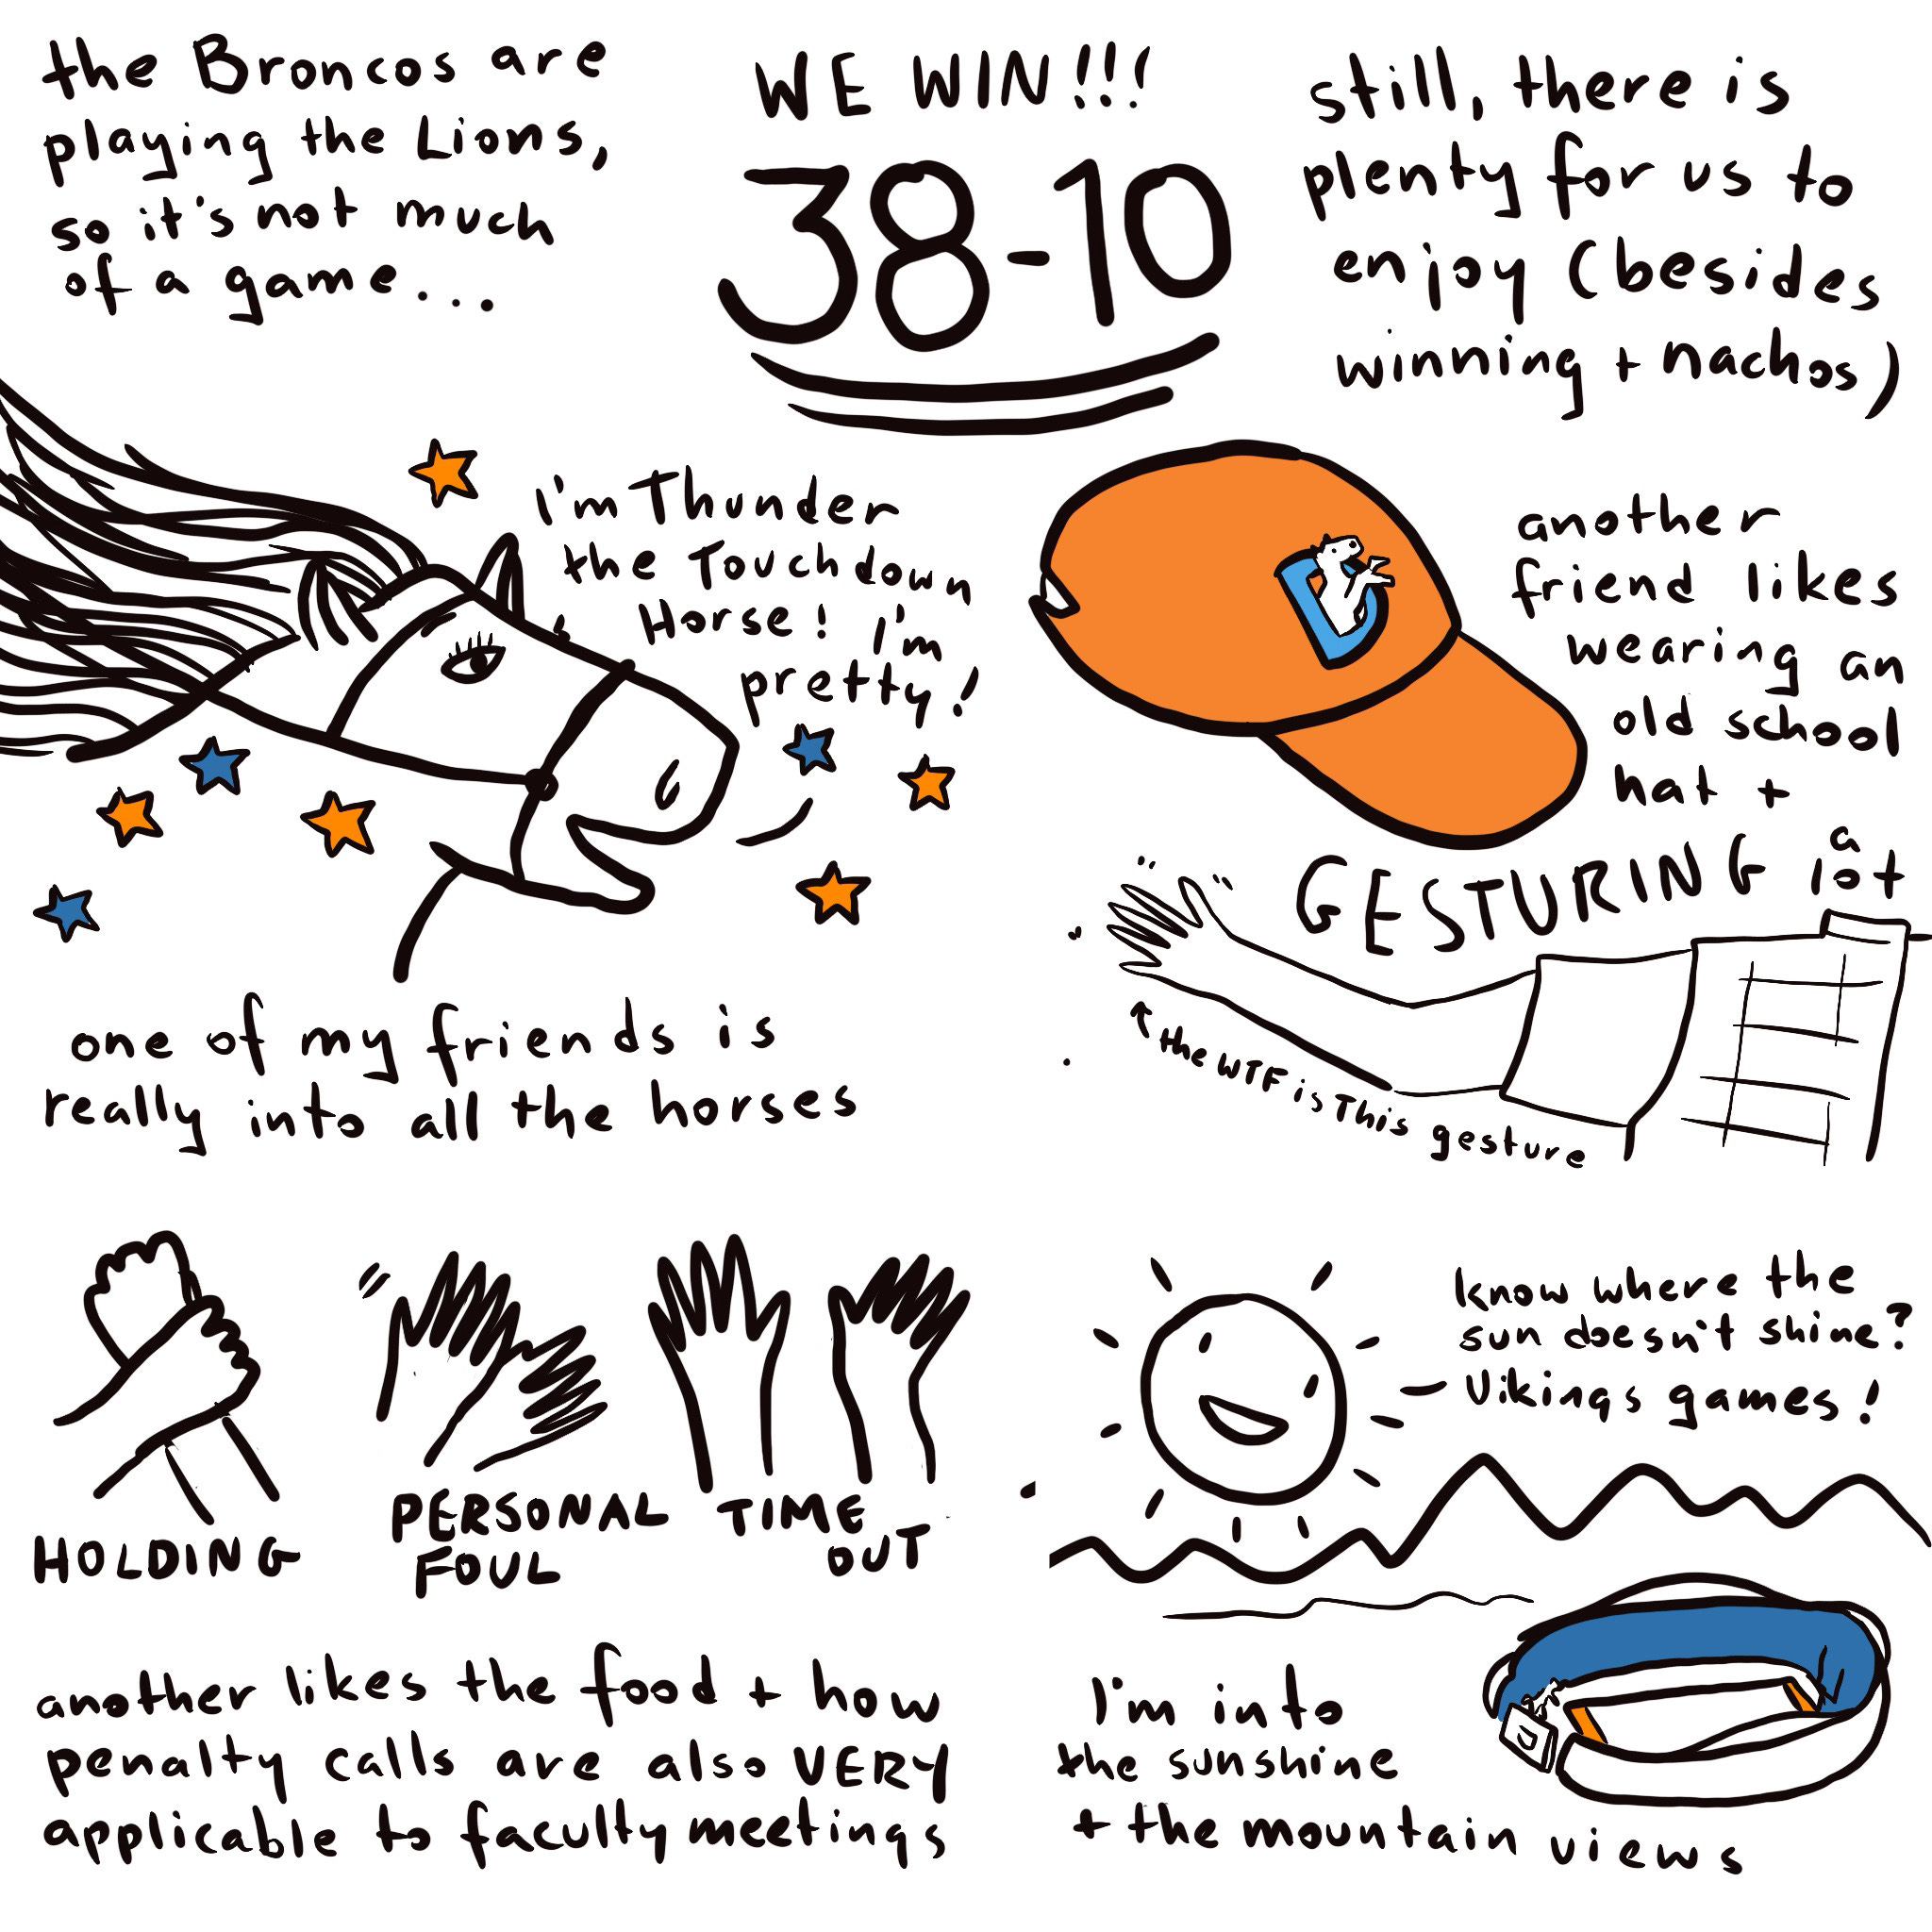 the Broncos are
playing the Lions,
so it's not much
of a game...
WE WIN!!!
38-10
still, there is
plenty for us to
enjoy (besides
winning + nachos)
i'm Thunder
the Touchdown
Horse! I'm
pretty!
one of my friends is
really into all the horses
another
friend likes
wearing an
old school
hat +
GESTURING a lot
the WTF is This gesture
HOLDING
PERSONAL
FOUL
TIME
OUT
another likes the food + how
penalty calls are also VERY
applicable to faculty meetings
know where the
sun doesn't shine?
Vikings games!
I'm into
the sunshine
+ the mountain views